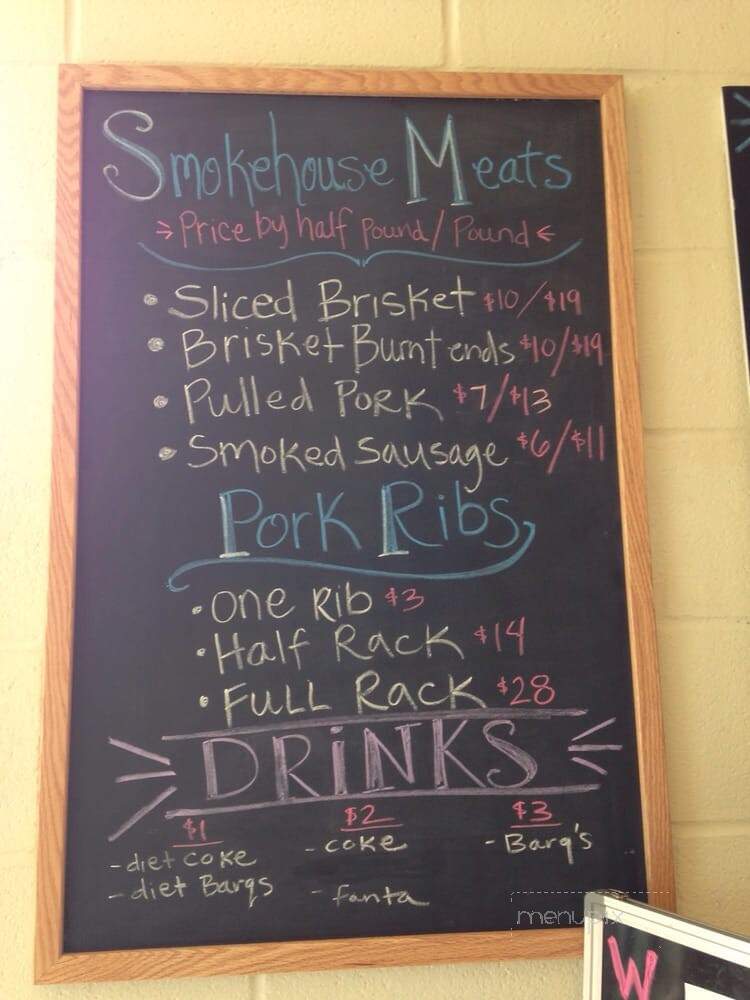 Smokehouse Meats
Price by half Pound / Pound
• Sliced Brisket $10/$19
• Brisket Burnt ends $10/$19
• Pulled Pork $7/$13
• Smoked Sausage $6/$11
Pork Ribs
• One Rib $3
• Half Rack $14
• FULL Rack $28
DRiNKS
$1 $2 $3
- diet coke - coke - Barq's
- diet Barqs - fanta
menupix
W